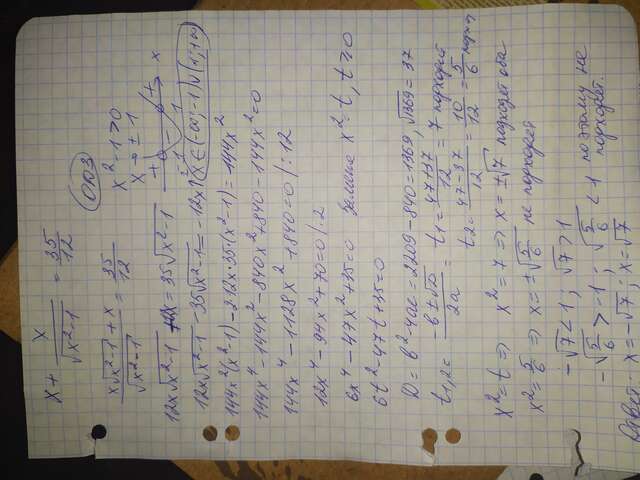 x + x/√(x²-1) = 35/12 ОДЗ
(x√(x²-1) + x)/√(x²-1) = 35/12 x²-1>0
x → ± 1
12x√(x²-1) + 12x = 35√(x²-1)
12x√(x²-1) - 35√(x²-1) = -12x |² x∈(-∞;-1)∪(1;+∞)
144x²(x²-1) - 2·12x·35·(x²-1) = 144x²
144x⁴ - 144x² - 840x² + 840 - 144x² = 0
144x⁴ - 1128x² + 840 = 0 |: 12
12x⁴ - 94x² + 70 = 0 |: 2
6x⁴ - 47x² + 35 = 0 Замена x² = t, t ≥ 0
6t² - 47t + 35 = 0
D = b² - 4ac = 2209 - 840 = 1369, √1369 = 37
t₁,₂ = (b ± √D)/2a = t₁ = (47+37)/12 = 7 подходит
t₂ = (47-37)/12 = 10/12 = 5/6 подход
x² = t ⇒ x² = 7 ⇒ x = ±√7 подходят оба
x² = 5/6 ⇒ x = ±√(5/6) не подходят
-√7 < 1; √7 > 1
-√(5/6) > -1; √(5/6) < 1 поэтому не подходят.
Ответ: x = -√7; x = √7